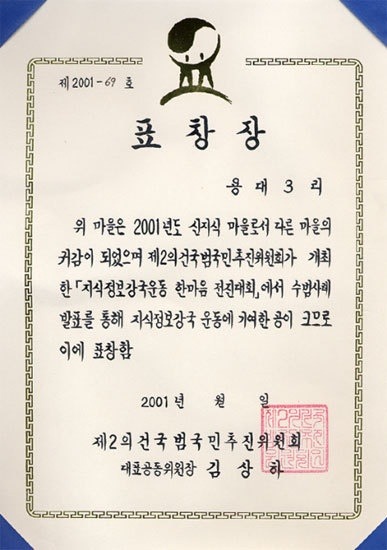 제2001-69호
표창장
용대3리
위 마을은 2001년도 신지식 마을로서 다른 마을의
귀감이 되었으며 제2의건국범국민추진위원회가 개최
한 「지식정보강국운동 한마음 전진대회」에서 수범사례
발표를 통해 지식정보강국 운동에 기여한 공이 크므로
이에 표창함
2001년 월 일
제2의건국범국민추진위원회
대표공동위원장 김상하